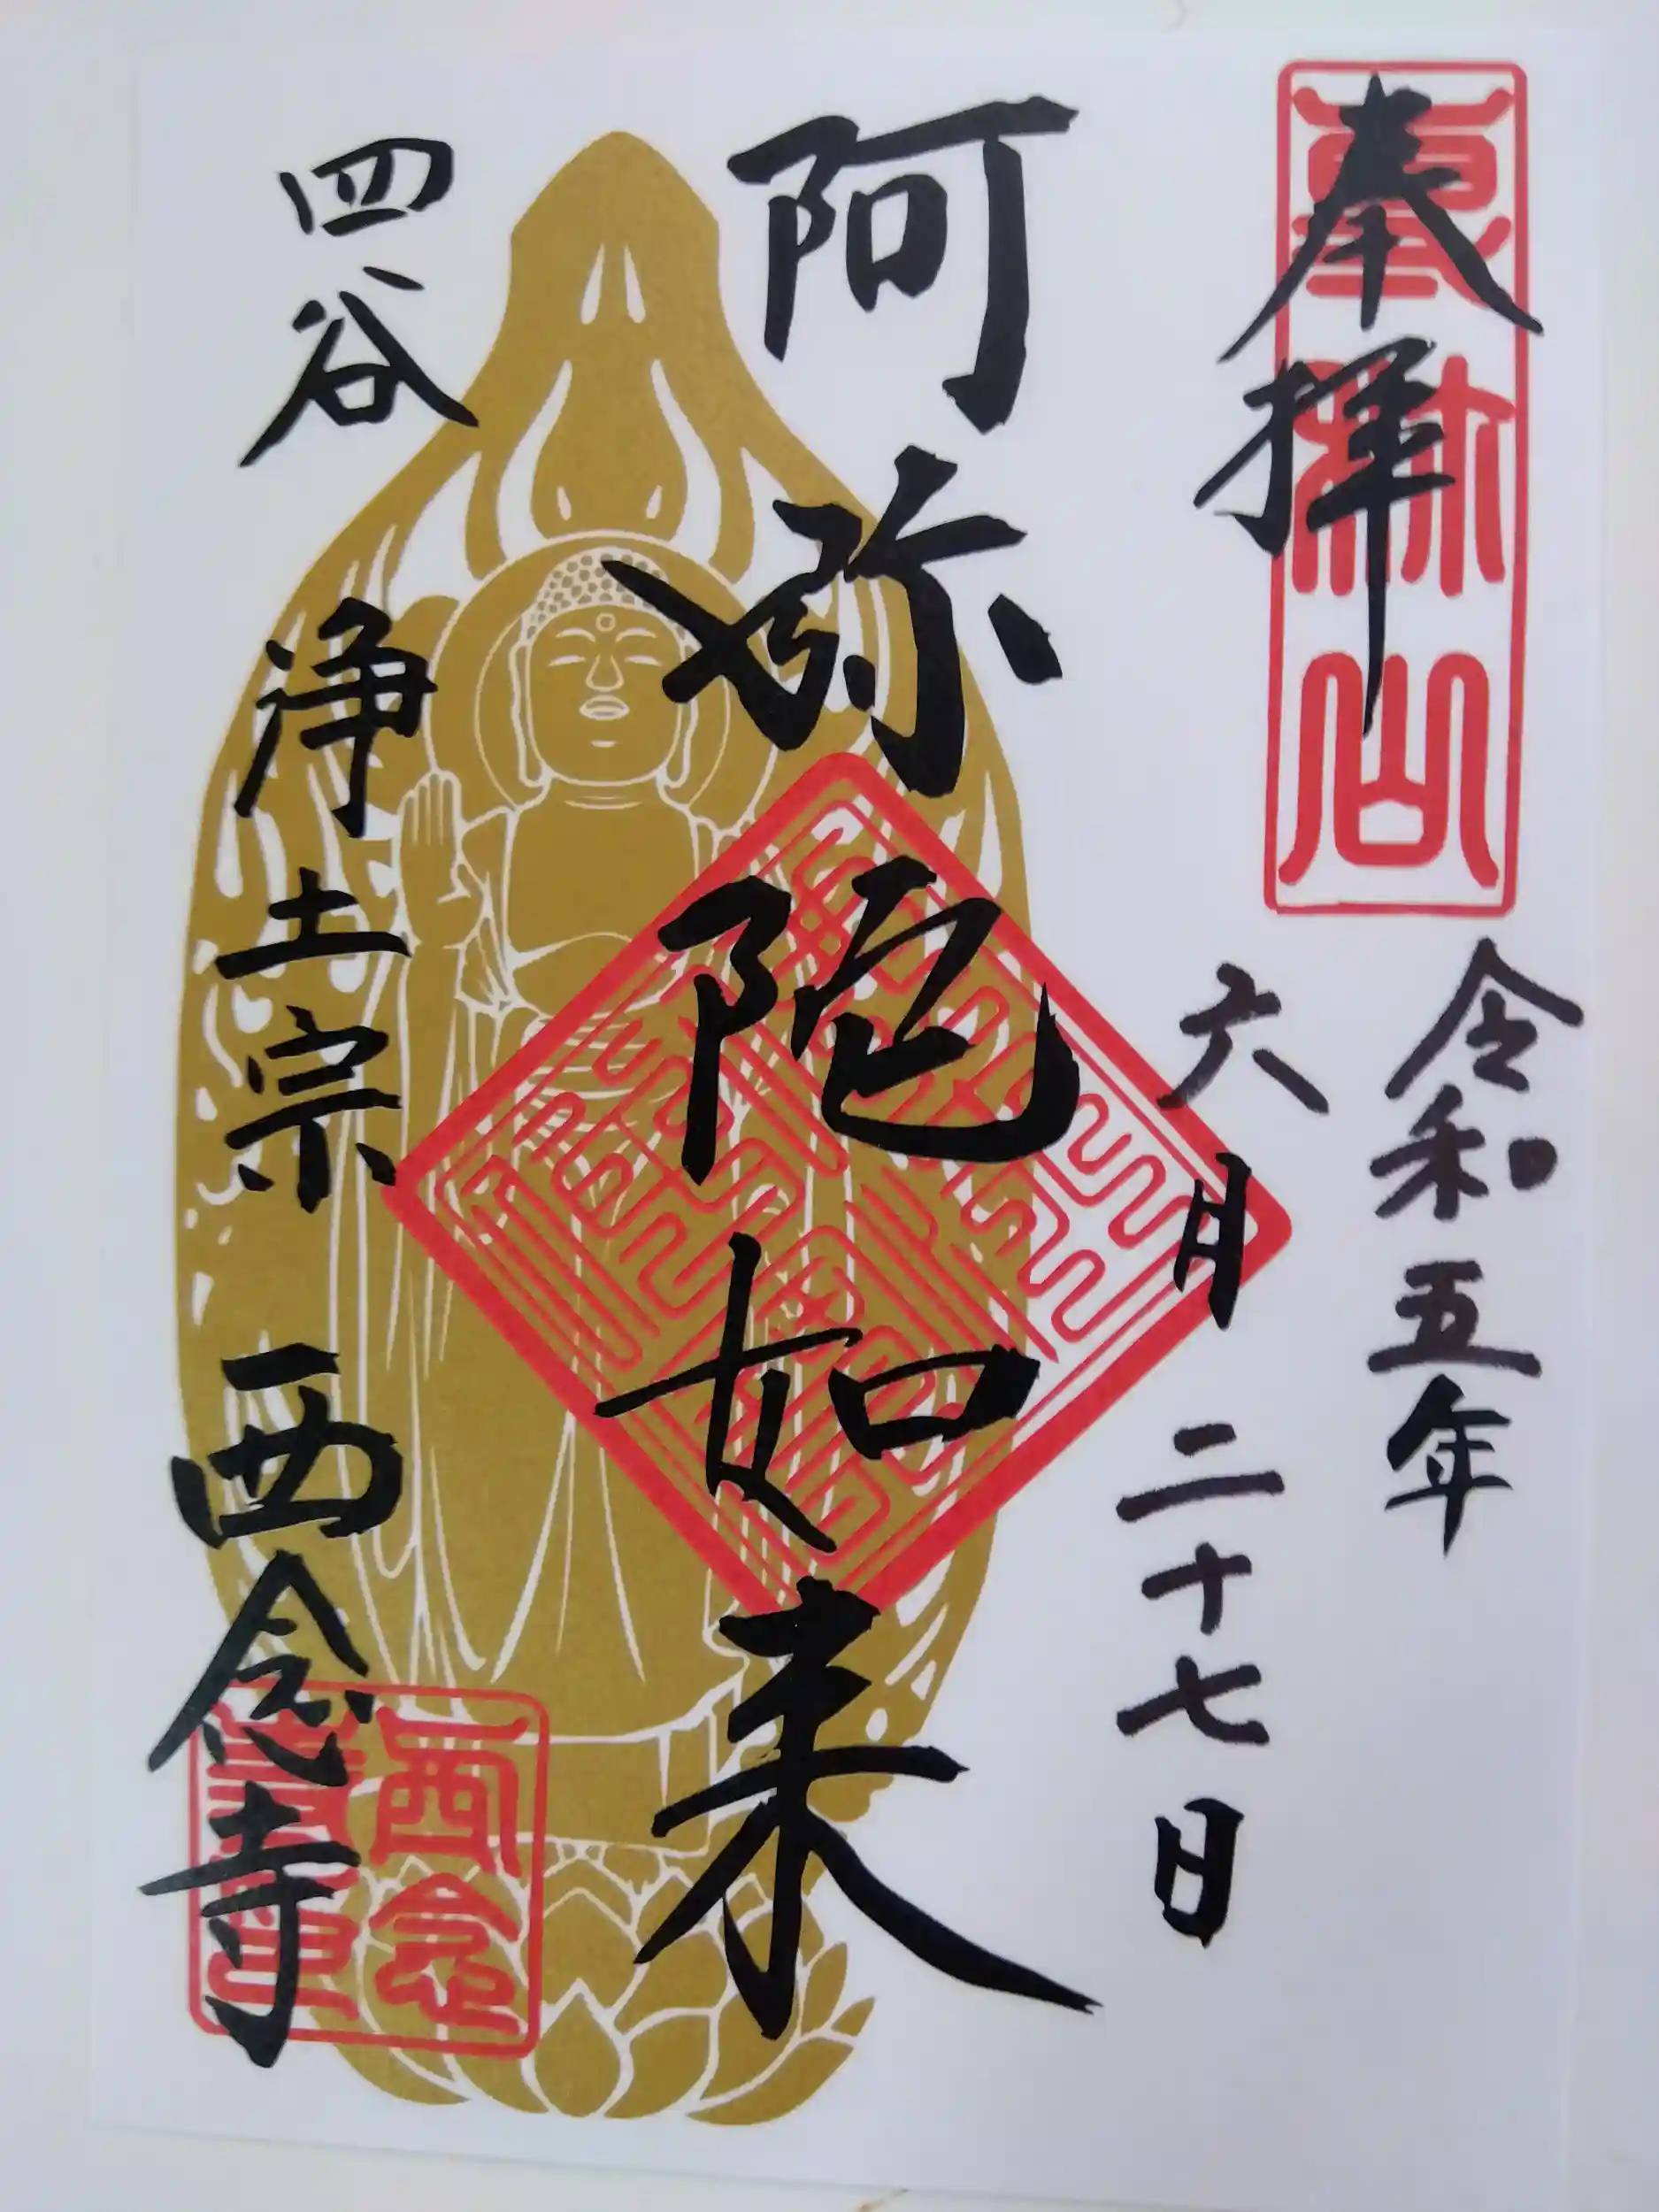 奉拝
令和五年
六月二十七日
阿弥陀如来
四谷 浄土宗 西念寺
西念